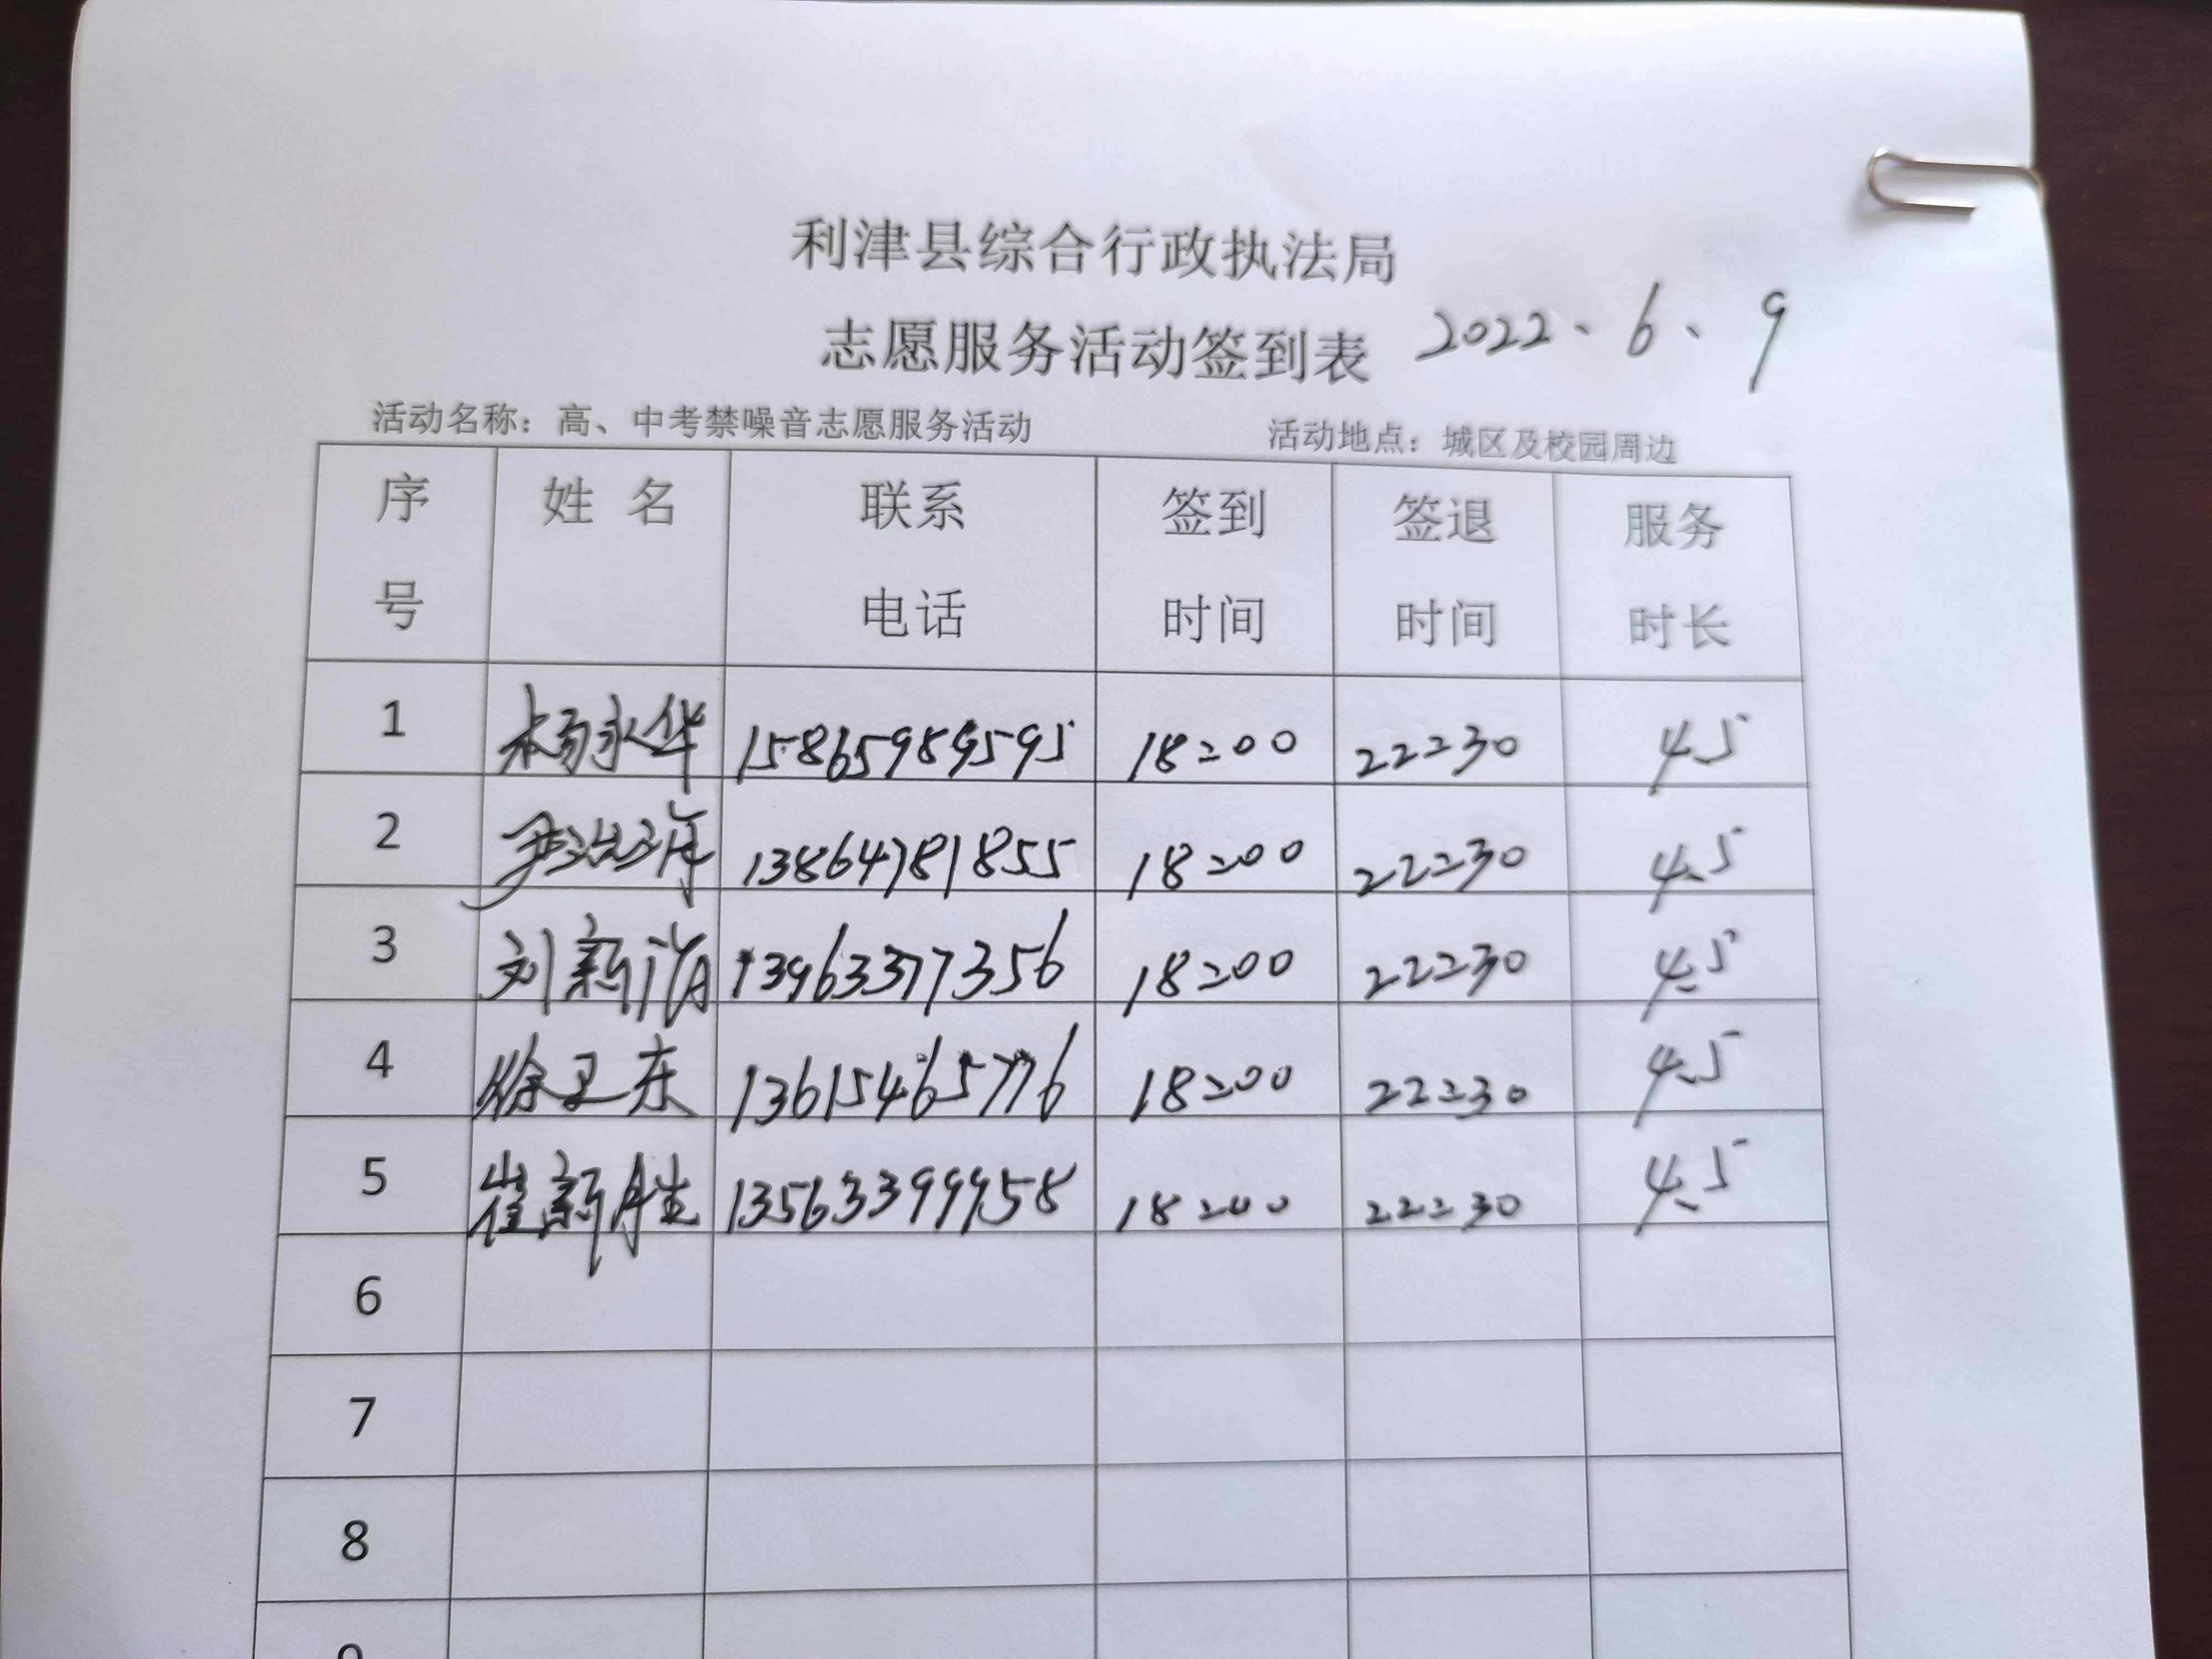 利津县综合行政执法局
志愿服务活动签到表 2022、6、9
活动名称：高、中考禁噪音志愿服务活动 活动地点：城区及校园周边
序号 姓名 联系电话 签到时间 签退时间 服务时长
1 杨永华 15865989595 18:00 22:30 4.5
2 13864781855 18:00 22:30 4.5
3 刘新 13963377356 18:00 22:30 4.5
4 徐卫东 13615465776 18:00 22:30 4.5
5 崔新胜 13563399958 18:00 22:30 4.5
6
7
8
9